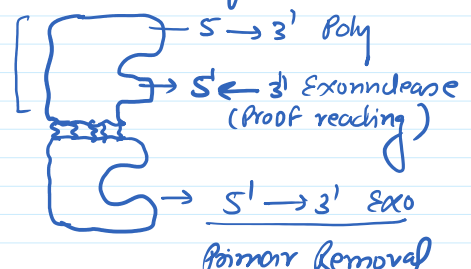 5 → 3' Poly
5' ← 3' Exonnclease
(Proof reading)
5' → 3' Exo
Primar Removal